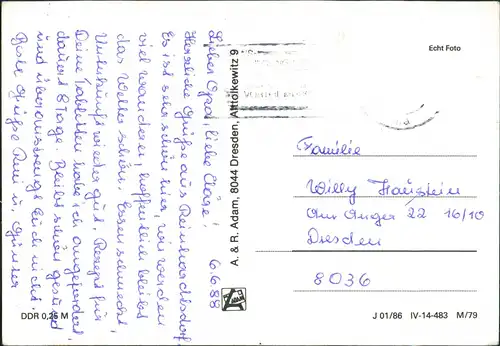 Lieber Opa, liebe Cläre! 6.6.88
Herzliche Grüße aus Reinhardtsdorf
Es ist sehr schön hier, wir werden
viel wandern, hoffentlich bleibt
das Wetter schön. Essen schmeckt,
Unterkunft wieder gut. Rezept für
Deine Tabletten habe ich angefordert,
dauert 8 Tage. Bleibt schön gesund
und überanstrengt Euch nicht.
Beste Grüße u. Günter
DDR 0,25 M
A. & R. Adam, 8044 Dresden, Altolkewitz 9
Echt Foto
Familie
Willy Haustein
Am Anger 22 16/10
Dresden
8036
J 01/86 IV-14-483 M/79